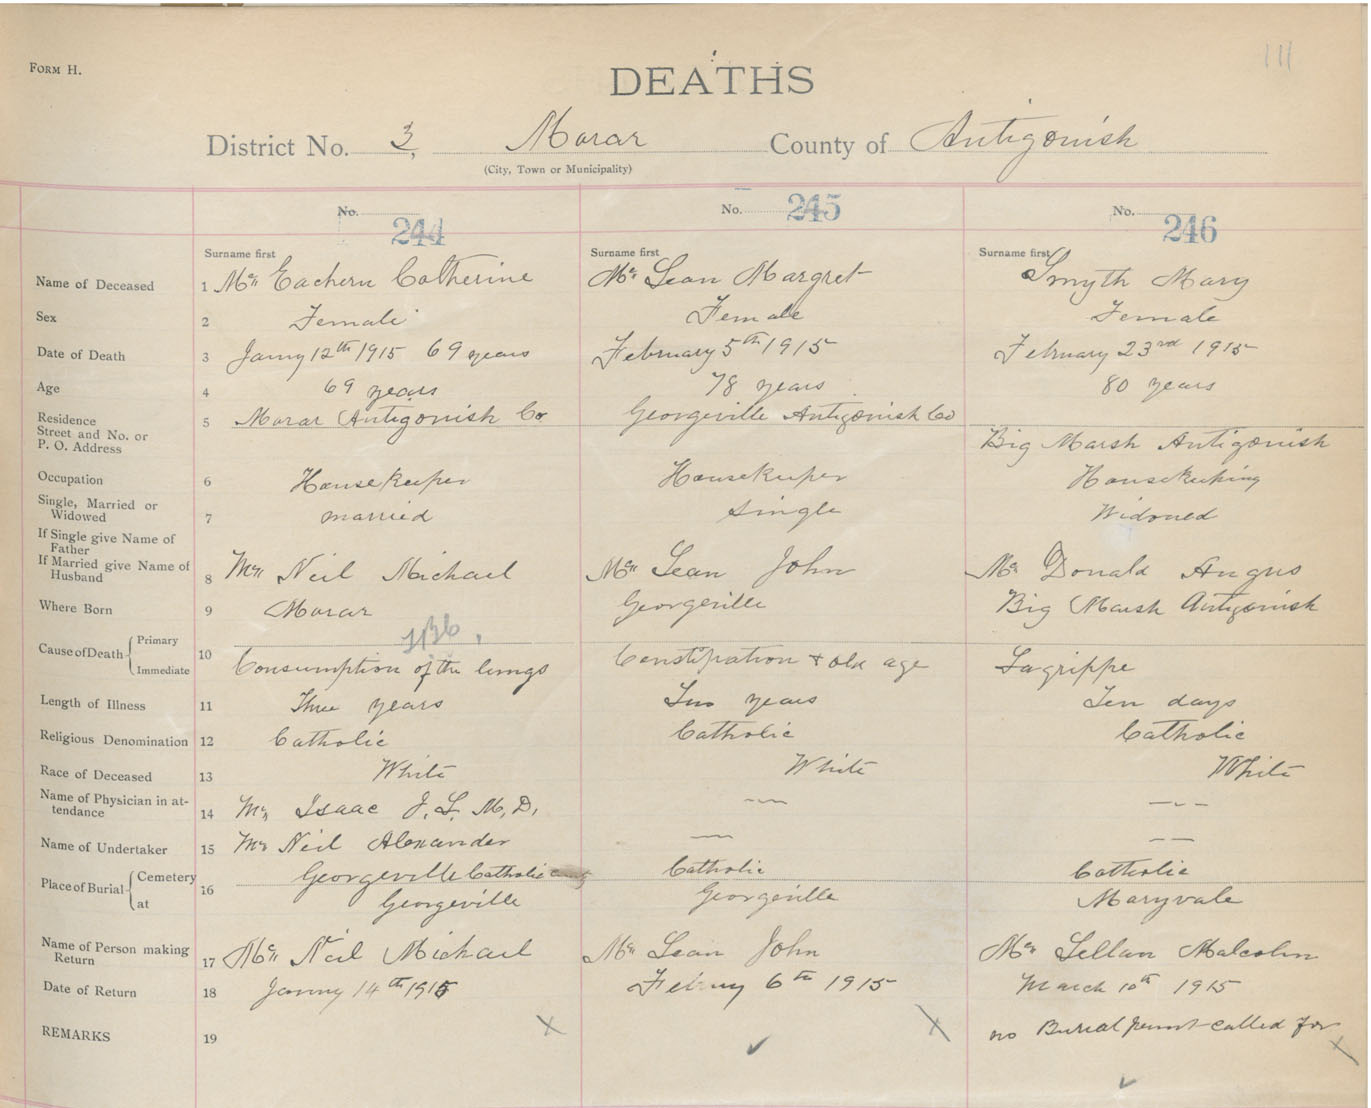 111
FORM H.
DEATHS
District No. 3, Morar County of Antigonish
(City, Town or Municipality)
No. 244 No. 245 No. 246
Surname first Surname first Surname first
Name of Deceased 1 Mc Eachern Catherine Mc Lean Margret Smyth Mary
Sex 2 Female Female Female
Date of Death 3 Janry 12th 1915 69 years February 5th 1915 February 23rd 1915
Age 4 69 years 78 years 80 years
Residence Street and No. or P. O. Address 5 Morar Antigonish Co Georgeville Antigonish Co Big Marsh Antigonish
Occupation 6 Housekeeper Housekeeper Housekeeping
Single, Married or Widowed 7 married single Widowed
If Single give Name of Father
If Married give Name of Husband 8 Mc Neil Michael Mc Lean John Mc Donald Angus
Where Born 9 Morar Georgeville Big Marsh Antigonish
Cause of Death Primary Immediate 10 Consumption of the lungs Constipation + old age Lagrippe
Length of Illness 11 Three years Two years Ten days
Religious Denomination 12 Catholic Catholic Catholic
Race of Deceased 13 White White White
Name of Physician in attendance 14 Mc Isaac J. L. M, D,
Name of Undertaker 15 Mc Neil Alexander
Place of Burial Cemetery 16 Georgeville Catholic Catholic Catholic
at Georgeville Georgeville Maryvale
Name of Person making Return 17 Mc Neil Michael Mc Lean John Mc Lellan Malcolm
Date of Return 18 Janry 14th 1915 Febry 6th 1915 March 10th 1915
REMARKS 19 no Burial permit called for